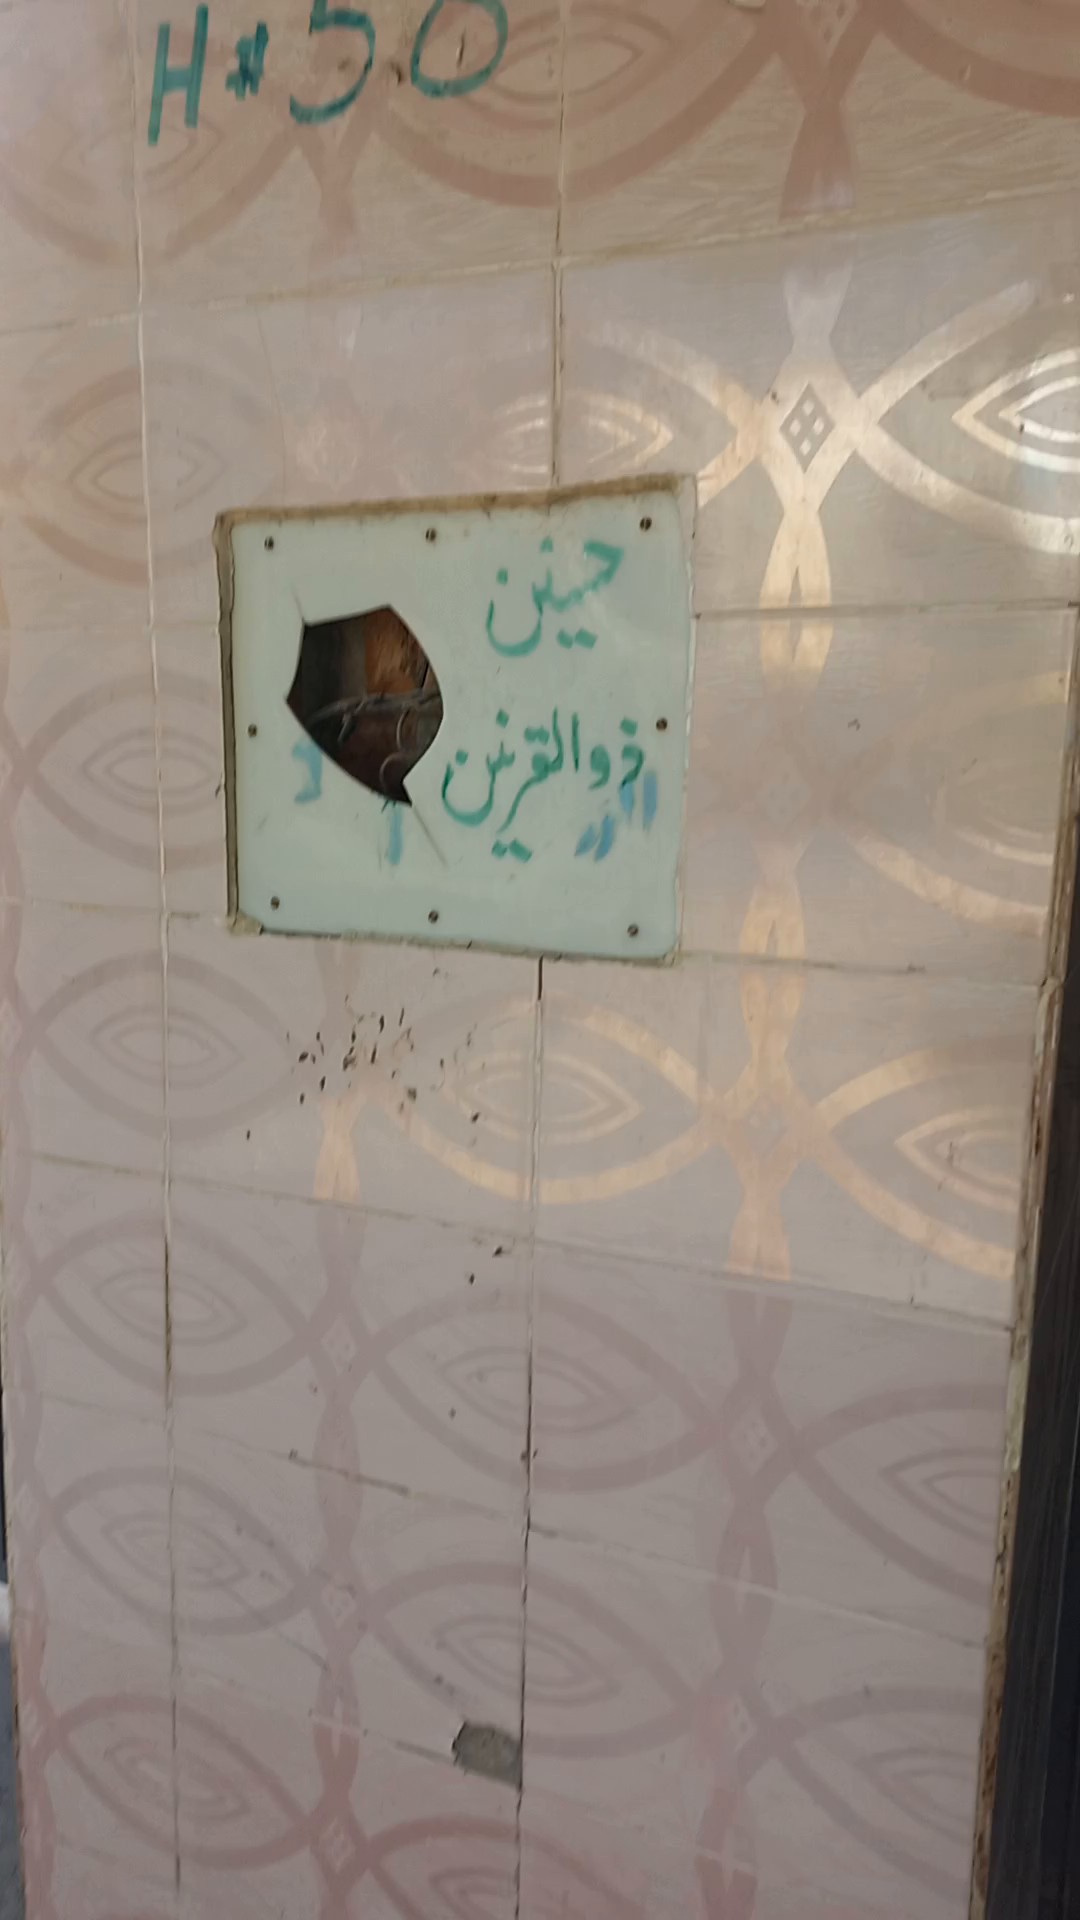 H#50
حنین
ذوالقرنین